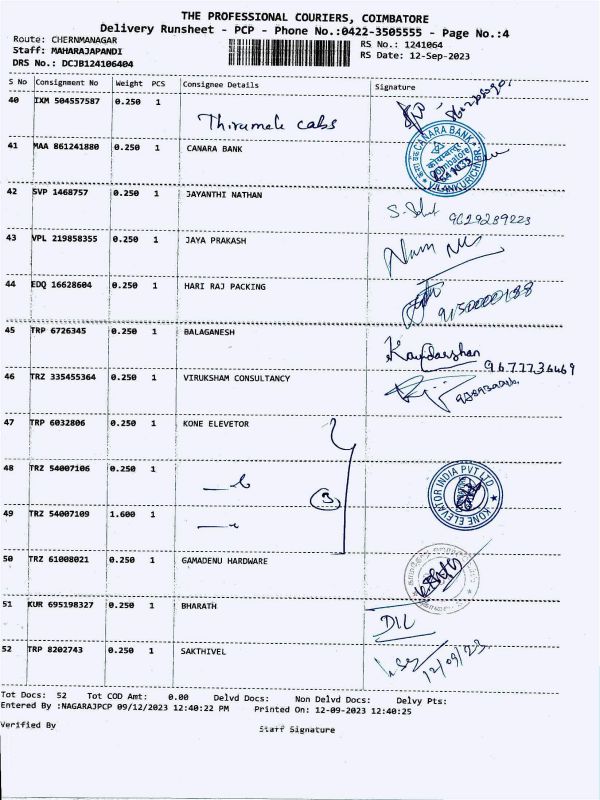 THE PROFESSIONAL COURIERS, COIMBATORE
Delivery Runsheet - PCP - Phone No.:0422-3505555 - Page No.:4
Route: CHERNMANAGAR
RS No.: 1241064
Staff: MAHARAJAPANDI
RS Date: 12-Sep-2023
DRS No.: DCJB124106404
S No Consignment No Weight PCS Consignee Details Signature
40 IXM 504557587 0.250 1 Thirumele cabs
41 MAA 861241880 0.250 1 CANARA BANK
CANARA BANK
42 SVP 1468757 0.250 1 JAYANTHI NATHAN
9629289223
43 VPL 219858355 0.250 1 JAYA PRAKASH
44 EDQ 16628604 0.250 1 HARI RAJ PACKING
9150000188
45 TRP 6726345 0.250 1 BALAGANESH
46 TRZ 335455364 0.250 1 VIRUKSHAM CONSULTANCY
47 TRP 6032806 0.250 1 KONE ELEVETOR
48 TRZ 54007106 0.250 1
3
KONE ELEVATOR INDIA PVT LTD
49 TRZ 54007109 1.600 1
50 TRZ 61008021 0.250 1 GAMADENU HARDWARE
51 KUR 695198327 0.250 1 BHARATH
DIL
52 TRP 8202743 0.250 1 SAKTHIVEL
12/09/23
Tot Docs: 52 Tot COD Amt: 0.00 Delvd Docs: Non Delvd Docs: Delvy Pts:
Entered By :NAGARAJPCP 09/12/2023 12:40:22 PM Printed On: 12-09-2023 12:40:25
Verified By
Staff Signature